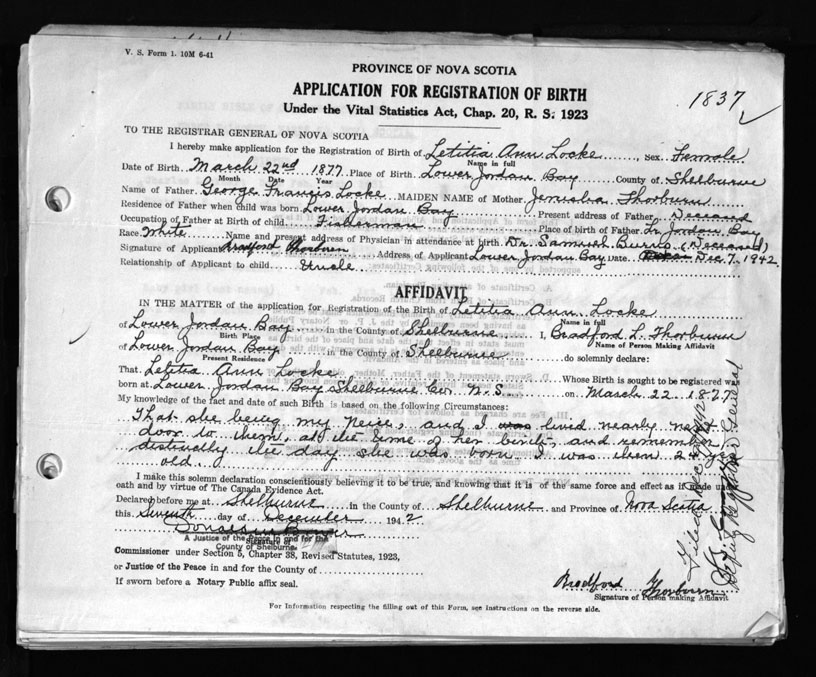 V. S. Form 1. 10M 6-41
PROVINCE OF NOVA SCOTIA
APPLICATION FOR REGISTRATION OF BIRTH
1837
Under the Vital Statistics Act, Chap. 20, R. S. 1923
TO THE REGISTRAR GENERAL OF NOVA SCOTIA
I hereby make application for the Registration of Birth of Letitia Ann Locke, Sex Female
Name in full
Date of Birth March 22nd 1877 Place of Birth Lower Jordan Bay County of Shelburne
Month Date Year
Name of Father George Francis Locke MAIDEN NAME of Mother Jerusha Thorburn
Residence of Father when child was born Lower Jordan Bay Present address of Father Deceased
Occupation of Father at Birth of child Fisherman Place of Birth of Father Lr Jordan Bay
Race White Name and present address of Physician in attendance at birth Dr. Samuel Burns (Deceased)
Signature of Applicant Bradford Thorburn Address of Applicant Lower Jordan Bay Date Dec 7, 1942
Relationship of Applicant to child Uncle
AFFIDAVIT
IN THE MATTER of the application for Registration of the Birth of Letitia Ann Locke
Name in full
of Lower Jordan Bay in the County of Shelburne I, Bradford L. Thorburn
Birth Place Name of Person Making Affidavit
of Lower Jordan Bay in the County of Shelburne do solemnly declare:
Present Residence
That Letitia Ann Locke Whose Birth is sought to be registered was
born at Lower Jordan Bay Shelburne Co. N. S. on March 22 1877
My knowledge of the fact and date of such Birth is based on the following Circumstances:
That she being my Neice, and I was lived nearly next
door to them, at the time of her birth, and remember
distinctly the day she was born. I was then 24
old.
I make this solemn declaration conscientiously believing it to be true, and knowing that it is of the same force and effect as if made under
oath and by virtue of The Canada Evidence Act.
Declared before me at Shelburne in the County of Shelburne and Province of Nova Scotia
this Seventh day of December 1942
A Justice of the Peace in and for the
Signature of
County of Shelburne
Commissioner under Section 5, Chapter 38, Revised Statutes, 1923,
or Justice of the Peace in and for the County of
If sworn before a Notary Public affix seal.
Bradford Thorburn
Signature of Person making Affidavit
For Information respecting the filling out of this Form, see instructions on the reverse side.
Filed Dec
Deputy Registrar General